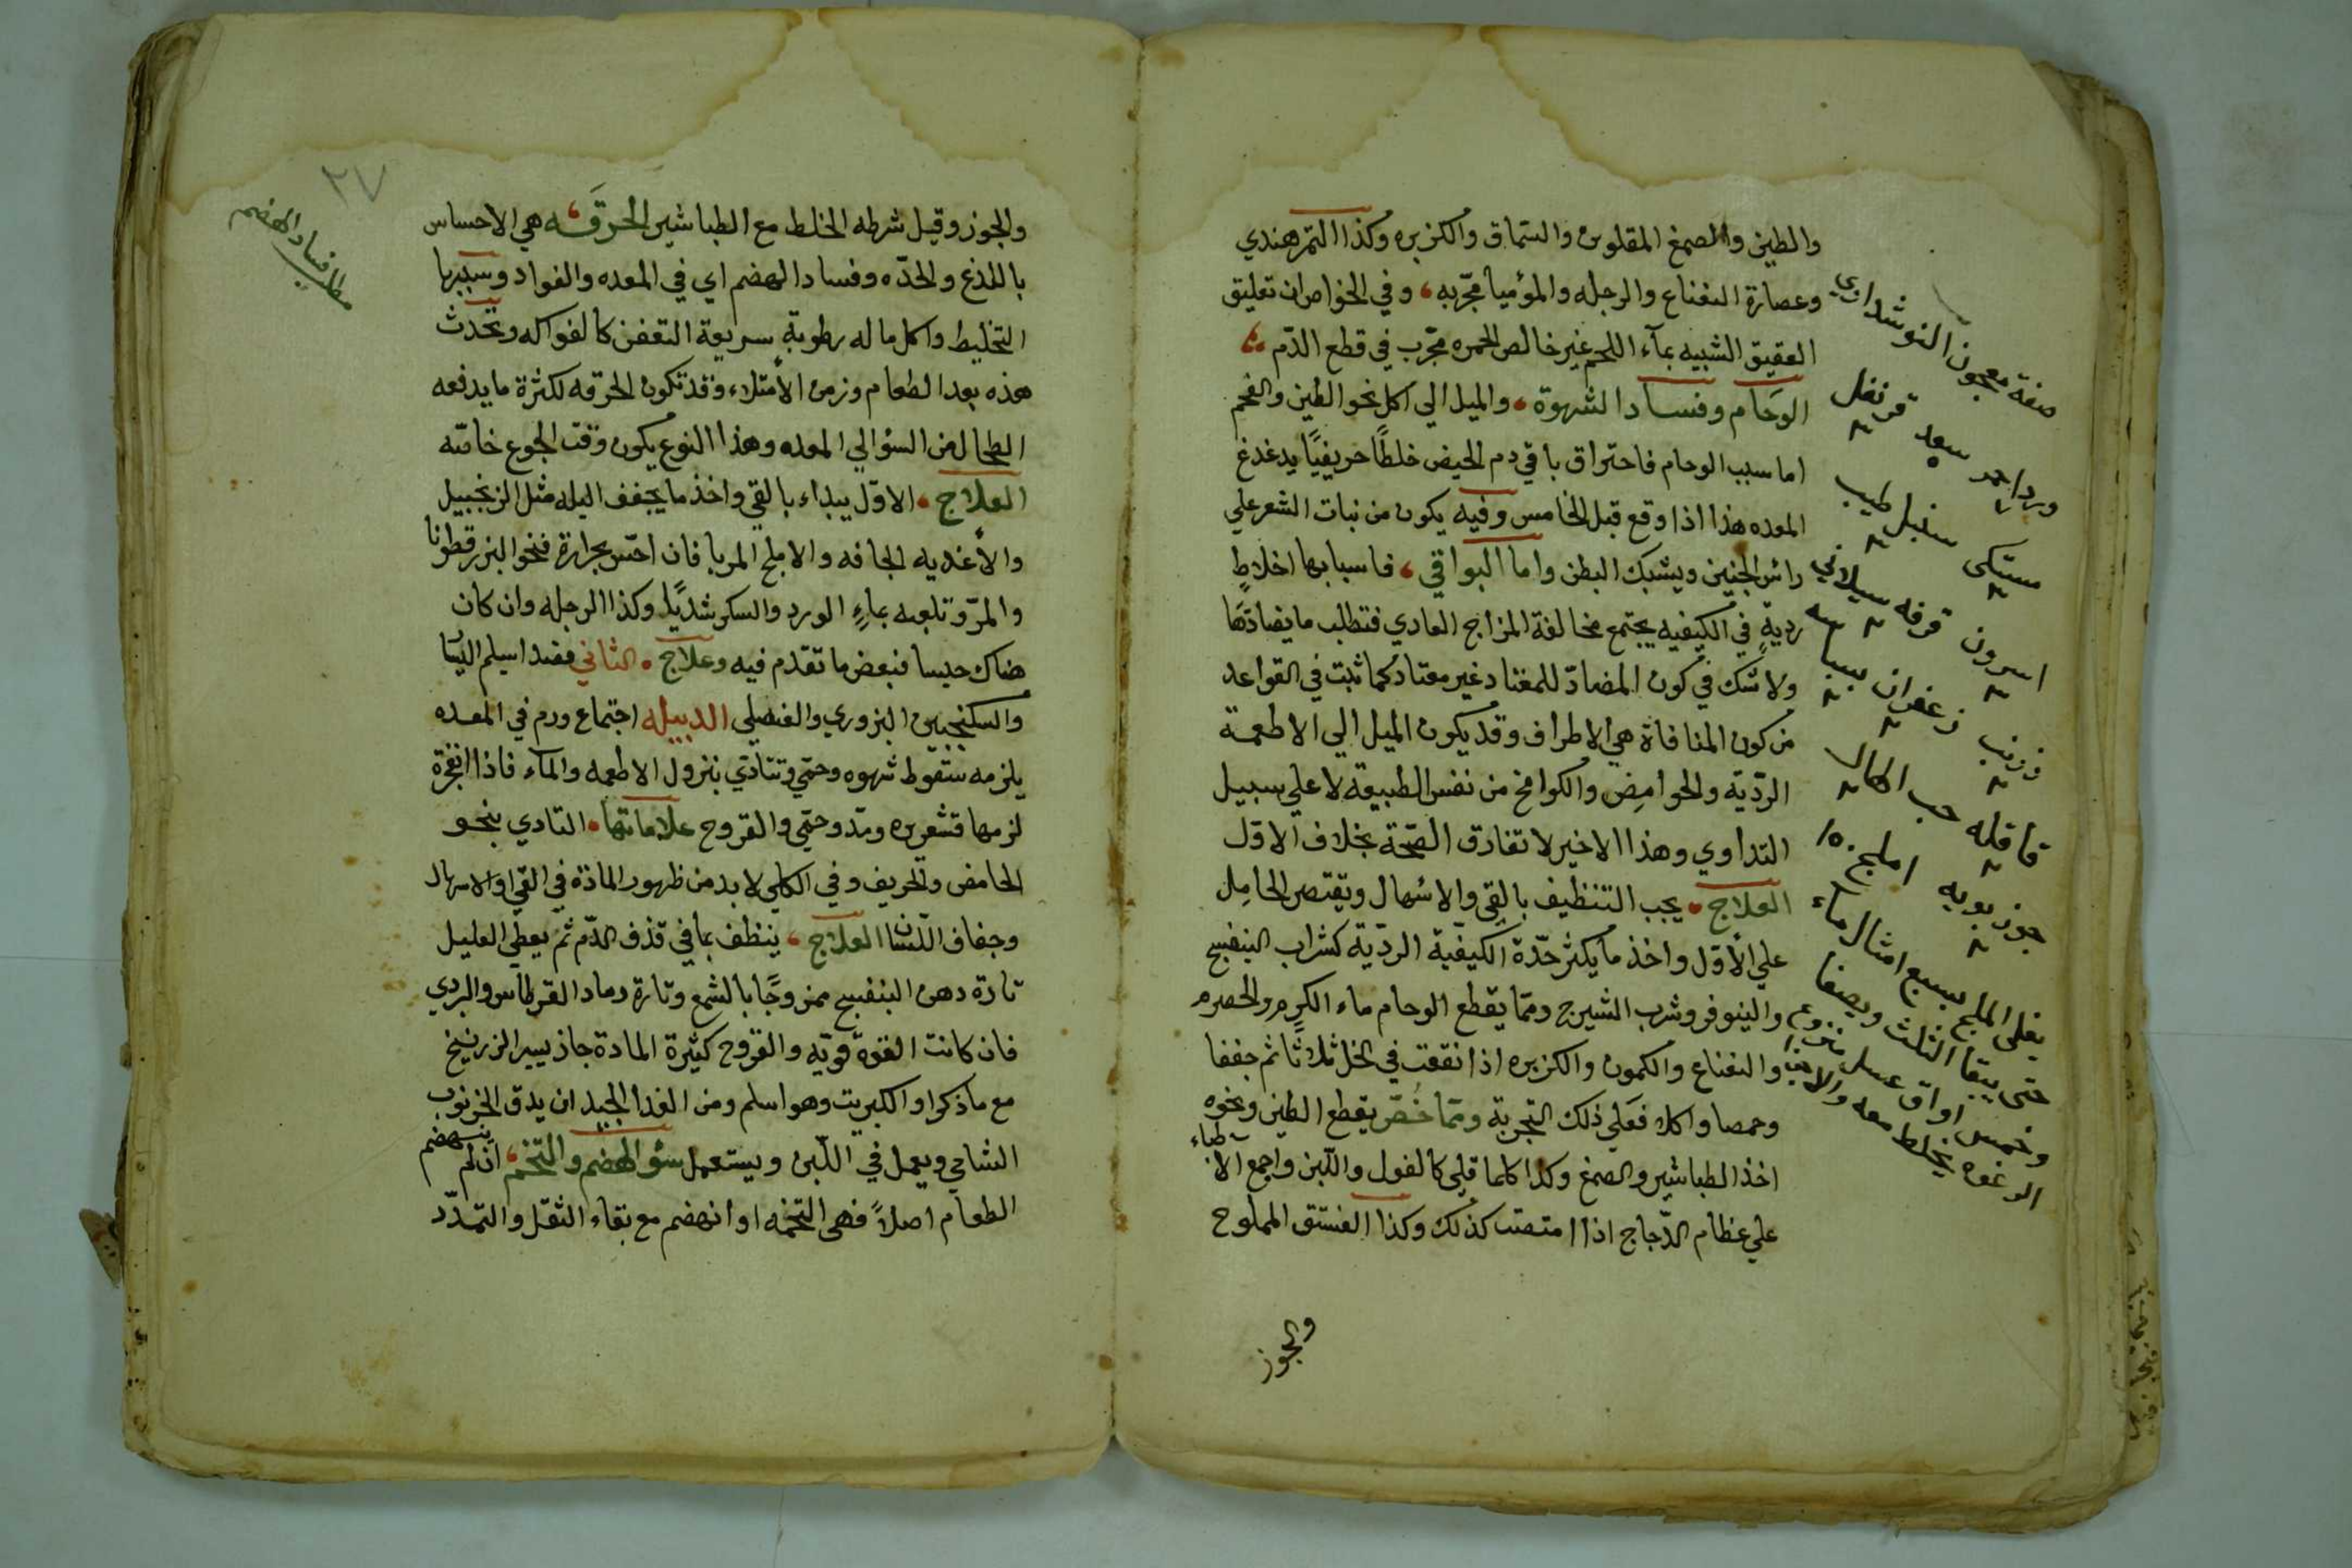 والطين والصمغ المقلوين والسماق والكزبره وكذا التمر هندي
وعصارة النعناع والرجله والموميا مجربه وفي الخواص ان تعليق
العقيق الشبيه بمآء اللحم غير خالص الحمره مجرّب في قطع الدّم
الوحَام وفساد الشهوة والميل الي اكل نحو الطين والفحم
اما سبب الوحام فاحتراق باقي دم الحيض خلطًا حريفيًا يدغدغ
المعده هذا اذا وقع قبل الخامس وفيه يكون من نبات الشعر علي
راس الجنين ويشبك البطن واما البواقي فاسبابها اخلاطٍ
رديةٍ في الكيفيه يجتمع مخالفة المزاج العادي فتطلب ما يضادّها
ولا شك في كون المضادّ للمعتاد غير معتاد كما ثبت في القواعد
من كون المنافاة هي الاطراف وقد يكون الميل الي الاطعمة
الرّديّة والحوامِض والكوامخ من نفس الطبيعة لا علي سبيل
التداوي وهذا الاخير لا تفارق الصّحّة بخلاف الاوّل
العلاج يجب التنظيف بالقي والاسهال ويقتصر الحامِل
علي الأوّل واخذ ما يكثر حدّة الكيفيّة الرديّة كشراب البنفسج
والينوفر وشرب الشيرج وممّا يقطع الوحام ماء الكرم والحصرم
والنعناع والكمون والكزبره اذا نقعت في الخل ثلاثًا ثم جففا
وحمصا واكلا فعَلي ذلك التجربة وممّا خُصّ يقطع الطين ونحوه
اخذ الطباشير والصمغ وكذا كلما قلي كالفول واللّبن واجمع الاطباء
علي عظام الدّجاج اذا امتصت كذلك وكذا الفستق المملوح
والجوز
صفة معجون النوشداري
ورد احمر سعد قرنفل
مستكى سنبل طيب
اسرون قرفه سيلاني
زرنب زعفران بسباسه
قاقله حب الهال
جوز بويه املج ١٥٠
يغلى الملج بسبع امثال ماء
حتى يبقا الثلث ويصفا
وخمس اواق عسل منزوع
الرغوه يخلط معه والاجزا
٢٧
مطلب فساد الهضم
والجوز وقيل شرطه الخلط مع الطباشير الحرقَه هي الاحساس
باللدغ والحدّه وفساد الهضم اي في المعده والفواد وسببها
التخليط واكل ما له رطوبة سريعة التعفن كالفواكه وتحدث
هذه بعد الطعام وزمن الأمتلاء وقد تكون الحرقه لكثرة ما يدفعه
الطحال من السؤ الي المعده وهذا النوع يكون وقت الجوع خاصّه
العلاج الاوّل يبداء بالقي واخذ ما يجفف البله مثل الزنجبيل
والأغذيه الجافه والاملج المربا فان احسّ بحرارة فنحو البزر قطونا
والمرّ وتلعبه بماءِ الورد والسكر شديًا وكذا الرجله وان كان
هناك حبسا فبعض ما تقدم فيه وعلاج الثاني فصد اسيلم اليسا
والسكنجبين البزوري والعنصلي الدبيله اجتماع ورم في المعده
يلزمه سقوط شهوه وحمّي وتتادّي بنزول الاطعمه والمآء فاذا انفجرة
لزمها قشعريره ومدّ وحمّي والقروح علاماتها التادي بنحو
الحامض والحريف وفي الكلّي لا بد من ظهور المادّة في القي او الاسهال
وجفاف اللّسان العلاج ينظف بما في قذف الدّم ثم يعطي العليل
تارة دهن البنفسج ممزوجًا بالشمع وتارة رماد القرطاس والبردي
فان كانت القوة قويّه والقروح كثيرة المادة جاز يسير الزرنيخ
مع ما ذكر او الكبريت وهو اسلم ومن الغذا الجيد ان يدق الخرنوب
الشامي ويعمل في اللّبن ويستعمل سؤ الهضم والتخم ان لم ينهضم
الطعام اصلاً فهي التخمه او انهضم مع بقاء الثقل والتمدّد